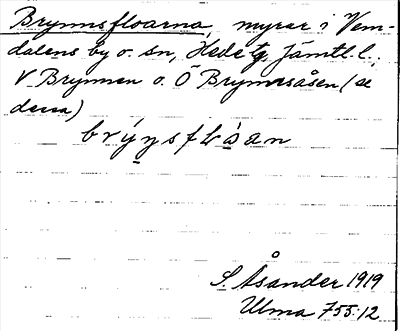 Brynnsfloarna, myrar i Vem-
dalens by o. sn, Hede tg, Jämtl. l.;
V Brynnen o. Ö Brynnsåsen (se
dessa)
brýn̥sfɫòan
S. Åsander 1919
Ulma 755:12